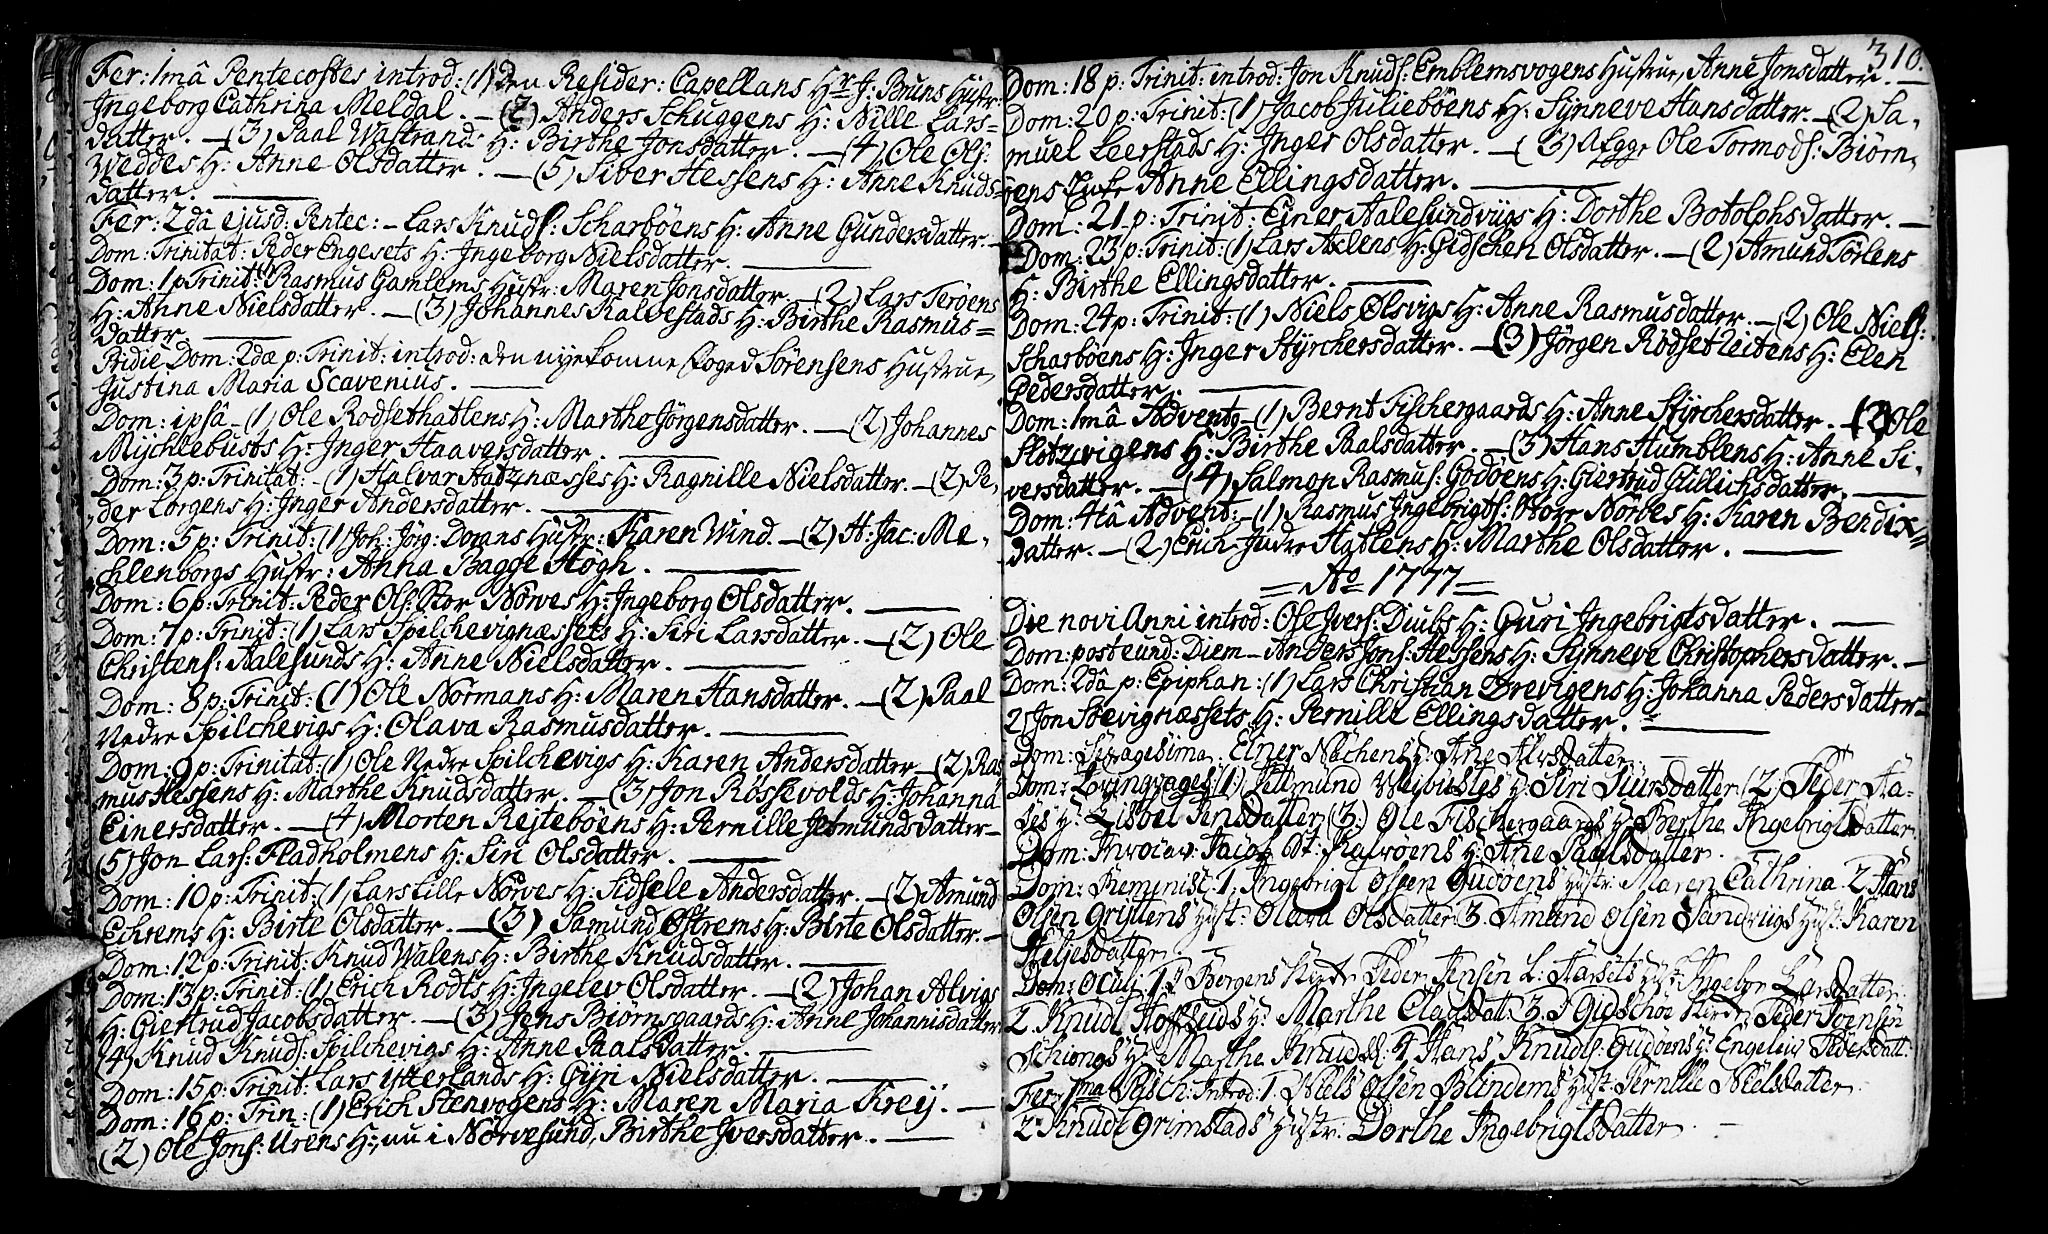 Fer: 1mâ Pentecostes introd: (1) den Resider: Capellans Hr J: Bruns Hustr:
Ingeborg Cathrina Meldal. — (2) Anders Schuggens H: Nille Lars=
datter. — (3) Paal Wastrands H: Birthe Jonsdatter. — (4) Ole Ols:
Weddes H: Anne Olsdatter. — (5) Siver Hessens H: Anne Knuds-
datter. —
Fer: 2dâ ejusd: Pentec: – Lars Knuds: Scharbøens H: Anne Gundersdatter. –
Dom: Trinitat: Peder Engesets H: Ingeborg Nielsdatter. —
Dom: 1 p Trinit: Rasmus Gamlems Hustr: Maren Jonsdatter. – (2) Lars Terøens
H: Anne Nielsdatter. — (3) Johannes Kalvestads H: Birthe Rasmus=
datter —
Pridie Dom: 2dæ p: Trinit: introd: den nyekomne Foged Sørensens Hustrue,
Justina Maria Scavenius. —
Dom: ipsâ – (1) Ole Rodsethatlens H: Marthe Jørgensdatter. — (2) Johannes
Mychlebusts H: Inger Haaversdatter. —
Dom: 3 p: Trinitat: – (1) Halvar Hatznæsses H: Ragnille Nielsdatter. – (2) Pe,
der Lorgens H: Inger Andersdatter. —
Dom: 5 p: Trinit: (1) Joh: Jörg: Dorans Hustr: Karen Wind — (2) H: Jac: Me,
chlenborgs Hustr: Anna Bagge Høgh. —
Dom: 6 p: Trinit: Peder Ols: Stor Nørves H: Ingeborg Olsdatter. —
Dom: 7 p: Trinit: (1) Lars Spilchevignæssets H: Siri Larsdatter. — (2) Ole
Christens: Aalesunds H: Anne Nielsdatter. —
Dom: 8 p: Trinit: (1) Ole Normans H: Maren Hansdatter. — (2) Paal
Nedre Spilchevigs H: Olava Rasmusdatter. —
Dom: 9 p: Trinitat: (1) Ole Nedre Spilchevigs H: Karen Andersdatter — (2) Ras
mus Hessens H: Marthe Knudsdatter. — (3) Jon Røssevolds H: Johanna
Einersdatter. — (4) Morten Rejtebøens H: Pernille Jetmundsdatter –
(5) Jon Lars: Fladholmens H: Siri Olsdatter. —
Dom: 10 p: Trinit: (1) Lars Lille Nørves H: Sidsele Andersdatter. — (2) Amund
Echrems H: Birte Olsdatter. — (3) Samund Østrems H: Birte Olsdatter. –
Dom: 12 p: Trinit: Knud Walens H: Birthe Knudsdatter. —
Dom: 13 p: Trinit: (1) Erich Rødts H: Ingelev Olsdatter. — (2) Johan Alvigs
H: Giertrud Jacobsdatter. — (3) Jens Biørnsgaards H: Anne Johannisdatter
(4) Knud Knuds: Spilchevigs H: Anne Paalsdatter. —
Dom: 15 p: Trinit: Lars Ytterlands H: Gyri Nielsdatter. —
Dom: 16 p: Trin: (1) Erich Stenvogens H: Maren Maria Kreij. —
(2) Ole Jons: Urens H: nu i Nørvesund, Birthe Iversdatter. —
310.
Dom: 18 p: Trinit: introd: Jon Knuds: Emblemsvogens Hustrue, Anne Jonsdatter. —
Dom: 20 p: Trinit: (1) Jacob Juliebøens H: Synneve Hansdatter. — (2) Sa,
muel Leerstads H: Inger Olsdatter. — (3) Ole Tormods: Biørn,
øens Anne Ellingsdatter. —
Dom: 21 p: Trinit: Einer Aalesundviigs H: Dorthe Botolphsdatter. —
Dom: 23 p: Trinit: (1) Lars Axlens H: Gidschen Olsdatter. — (2) Amund Tørlens
H: Birthe Ellingsdatter. —
Dom: 24 p: Trinit: (1) Niels Ølsvigs H: Anne Rasmusdatter. — (2) Ole Niels:
Scharbøens H: Inger Styrchersdatter. — (3) Jørgen Rødsetleitens H: Elen
Pedersdatter. —
Dom: 1mâ Advent – (1) Bernt Fischergaards H: Anne Styrchersdatter. — (2) Ole
Slotzvigens H: Birthe Paalsdatter. — (3) Hans Humblens H: Anne Si,
versdatter. — (4) Salmon Rasmus: Godøens H: Giertrud Gillichsdatter. —
Dom: 4tâ Advent: – (1) Rasmus Ingebrigts: Store Nørves H: Karen Bendix=
datter. — (2) Erich Indre Hatlens H: Marthe Olsdatter. —
= Ao 1777 =
Die novi Anni introd: Ole Ivers: Diubs H: Guri Ingebrigtsdatter. —
Dom: post eund: Diem – Anders Jons: Hessens H: Synneve Christophersdatter. —
Dom: 2dâ p: Epiphan: (1) Lars Christian Brevigens H: Johanna Pedersdatter –
2) Jon Støevignæssets H: Pernille Ellingsdatter. —
Dom: Sexagesima: Einer H: Ane
Dom: (1) Jetmund H: Siri (2) Peder
H: Lisbet Jensdatter (3) Ole Fischergaards H: Berthe Ingebrigtsdatter.
Dom: Invocav: Jacob Kalvøens H: Ane Paalsdatter.
Dom: Reminisc: 1. Ingebrigt Olsen Gudøens Hustr: Maren Cathrina 2 Hans
Olsen Grittens Hust: Olava Olsdatter 3. Amund Olsen Sandviigs Hust: Karen
Heljesdatter
Dom: Oculi 1. i Borgens Kirke Peder Jensen L. Aarsets Hust: Ingebor Larsdatter
2. Knud H: Marthe 3. i Gidschøe Kirke Peder
H: Marthe 4 Hans Knuds: Gudøens H: Engelev Pedersdatt:
Fer: 1ma Pasch: Introd: 1. Niels Olsen Blindems Hust: Pernille Nielsdatter
2 Knud Grimstads Hustr: Dorthe Ingebrigtsdatter